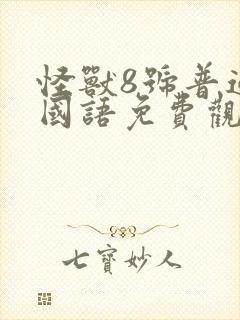 怪獸8號普通
國語免費觀
七寶妙人